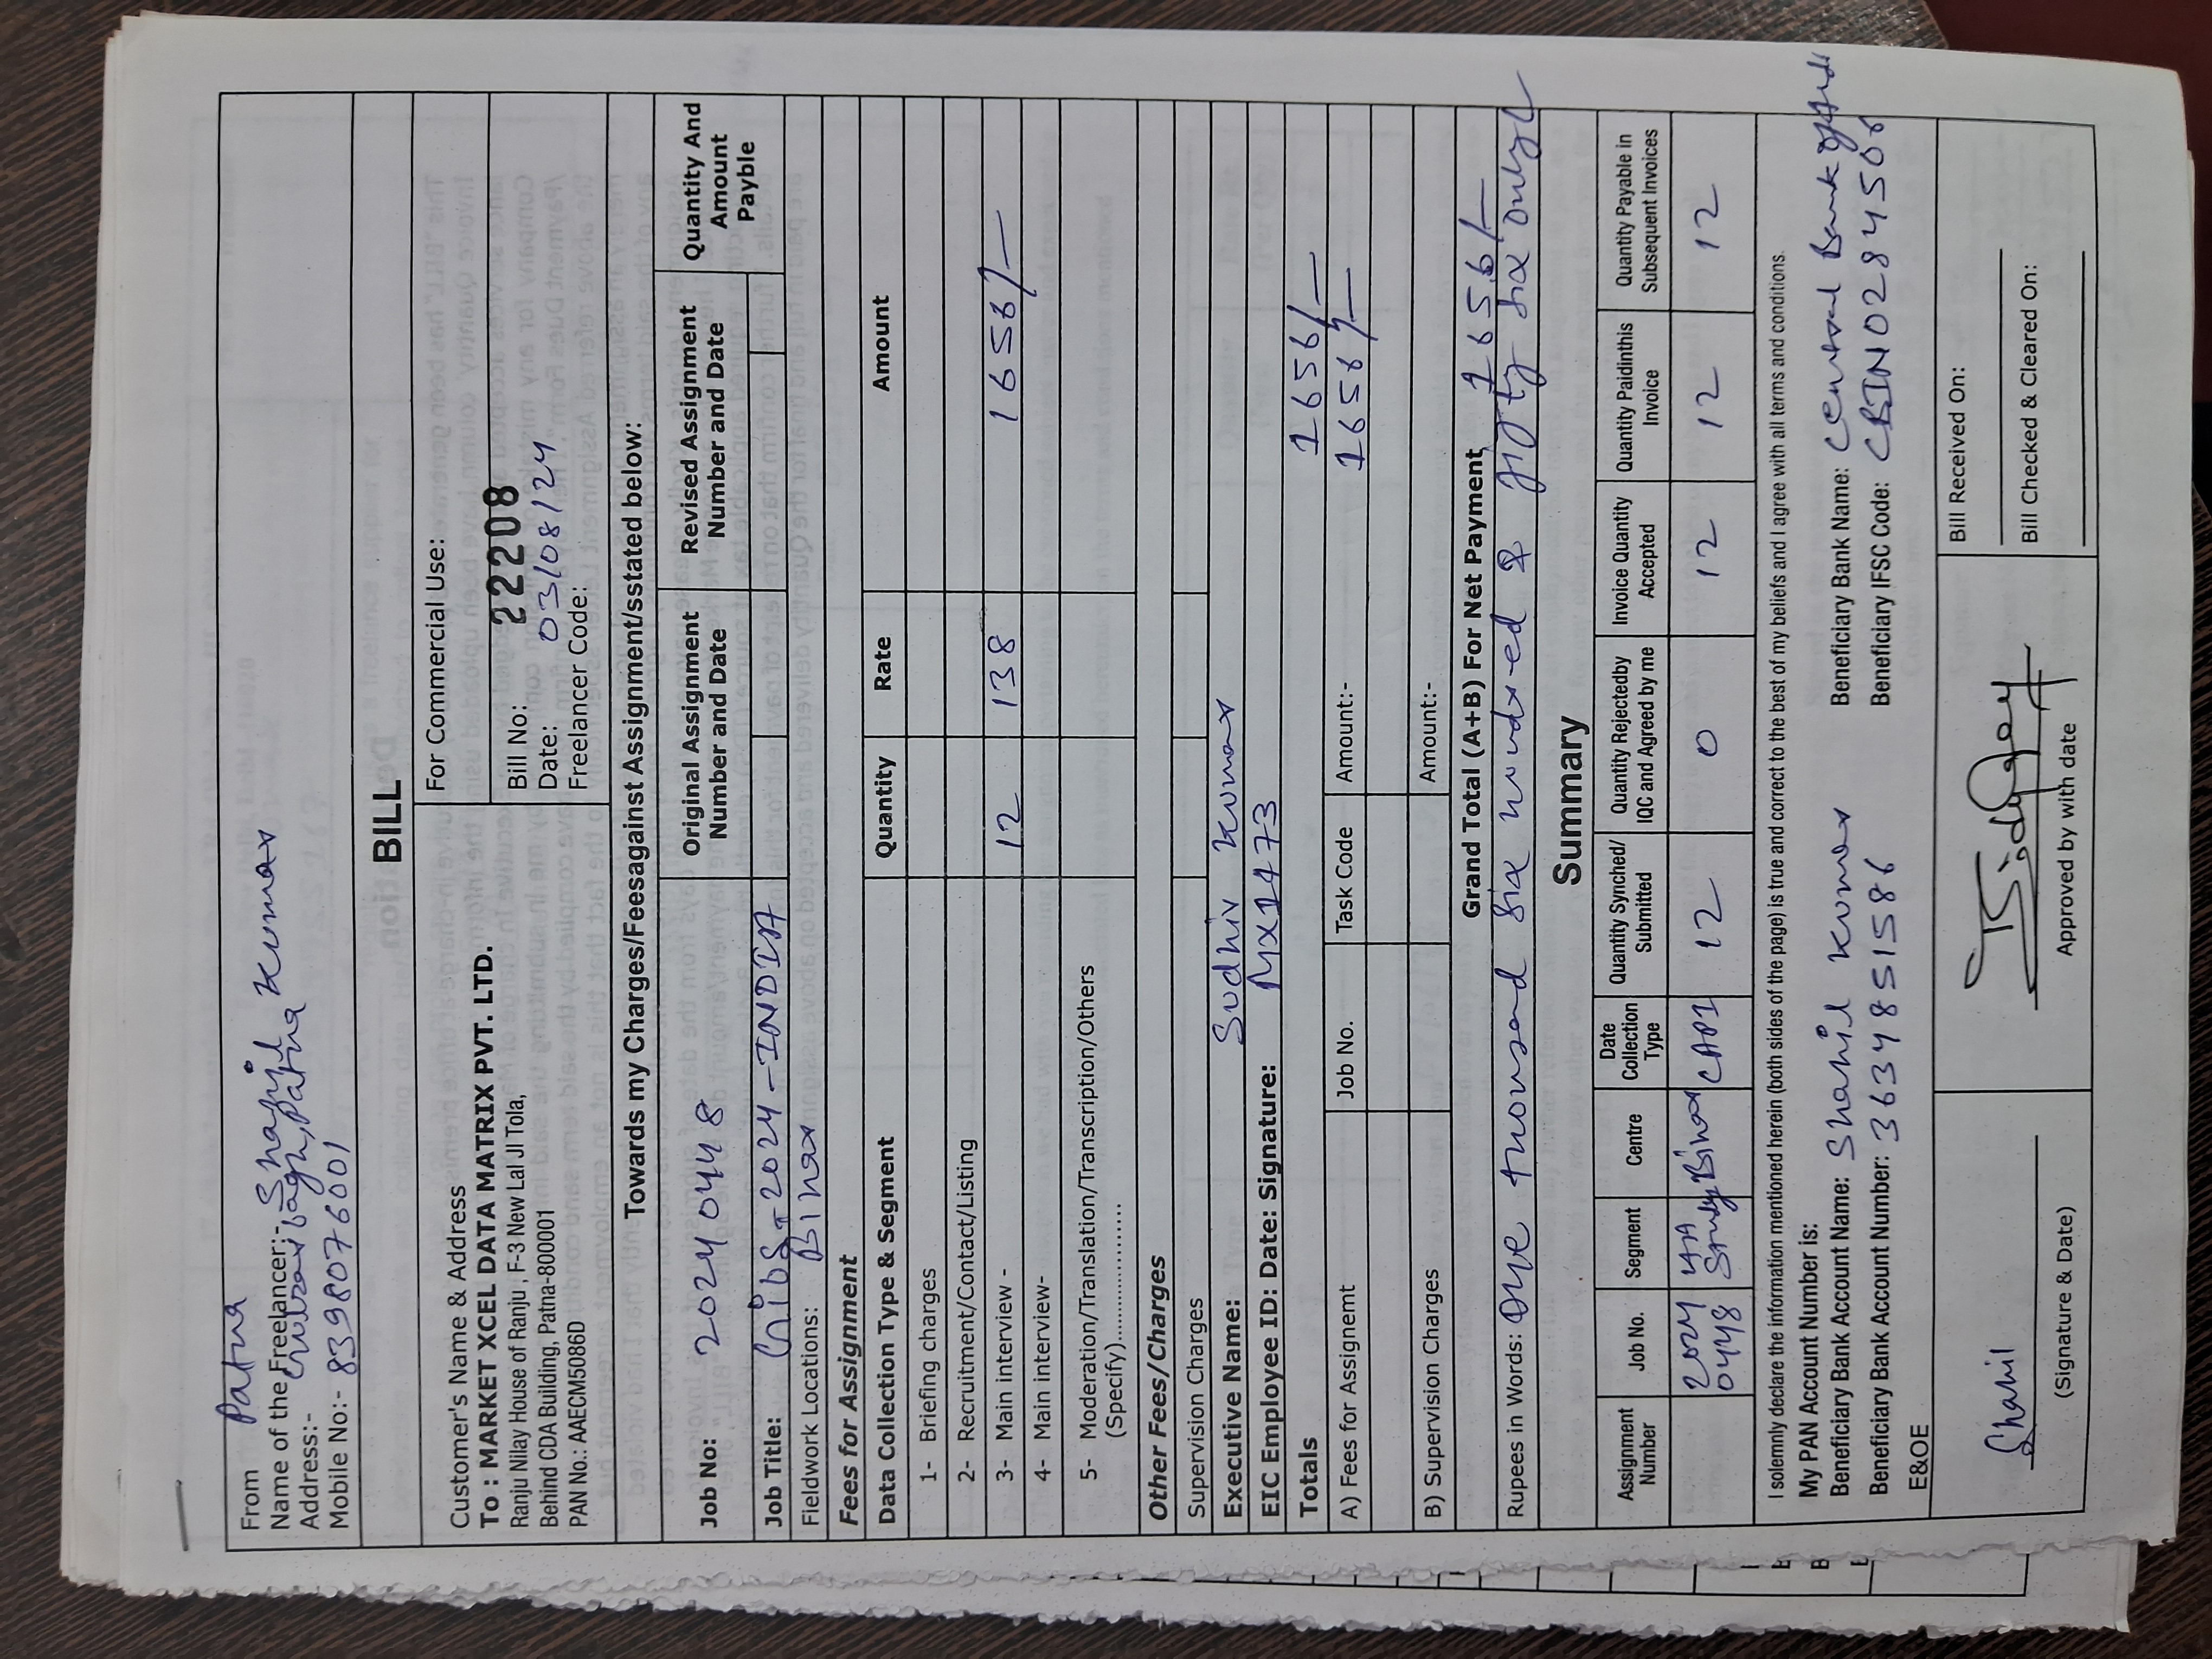 From Patna
Name of the Freelancer:- Shahil Kumar
Address:- bagh, Patna
Mobile No:- 8398076001
BILL
Customer's Name & Address
To : MARKET XCEL DATA MATRIX PVT. LTD.
Ranju Nilay House of Ranju , F-3 New Lal JI Tola,
Behind CDA Building, Patna-800001
PAN No.: AAECM5086D
For Commercial Use:
Bill No: 22208
Date: 03/08/24
Freelancer Code:
Towards my Charges/Feesagainst Assignment/sstated below:
Job No: 20240448
Original Assignment Number and Date
Revised Assignment Number and Date
Quantity And Amount Payble
Job Title: 2024-INDIA
Fieldwork Locations: Bihar
Fees for Assignment
Data Collection Type & Segment Quantity Rate Amount
1- Briefing charges
2- Recruitment/Contact/Listing
3- Main interview - 12 138 1656/-
4- Main interview-
5- Moderation/Translation/Transcription/Others
(Specify)..................
Other Fees/Charges
Supervision Charges
Executive Name: Sudhir Kumar
EIC Employee ID: Date: Signature: MX1473
Totals 1656/-
A) Fees for Assignemt Job No. Task Code Amount:- 1656/-
B) Supervision Charges Amount:-
Grand Total (A+B) For Net Payment 1656/-
Rupees in Words: One thousand six hundred & fifty six only
Summary
Assignment Number
Job No.
Segment
Centre
Date Collection Type
Quantity Synched/ Submitted
Quantity Rejectedby IQC and Agreed by me
Invoice Quantity Accepted
Quantity Paidinthis Invoice
Quantity Payable in Subsequent Invoices
20240448 Study Bihar CAPI 12 0 12 12 12
I solemnly declare the information mentioned herein (both sides of the page) is true and correct to the best of my beliefs and I agree with all terms and conditions.
My PAN Account Number is:
Beneficiary Bank Account Name: Shahil Kumar
Beneficiary Bank Name: Central Bank of
Beneficiary Bank Account Number: 3634851586
Beneficiary IFSC Code: CBIN0284506
E&OE
Shahil
(Signature & Date)
Approved by with date
Bill Received On:
Bill Checked & Cleared On: